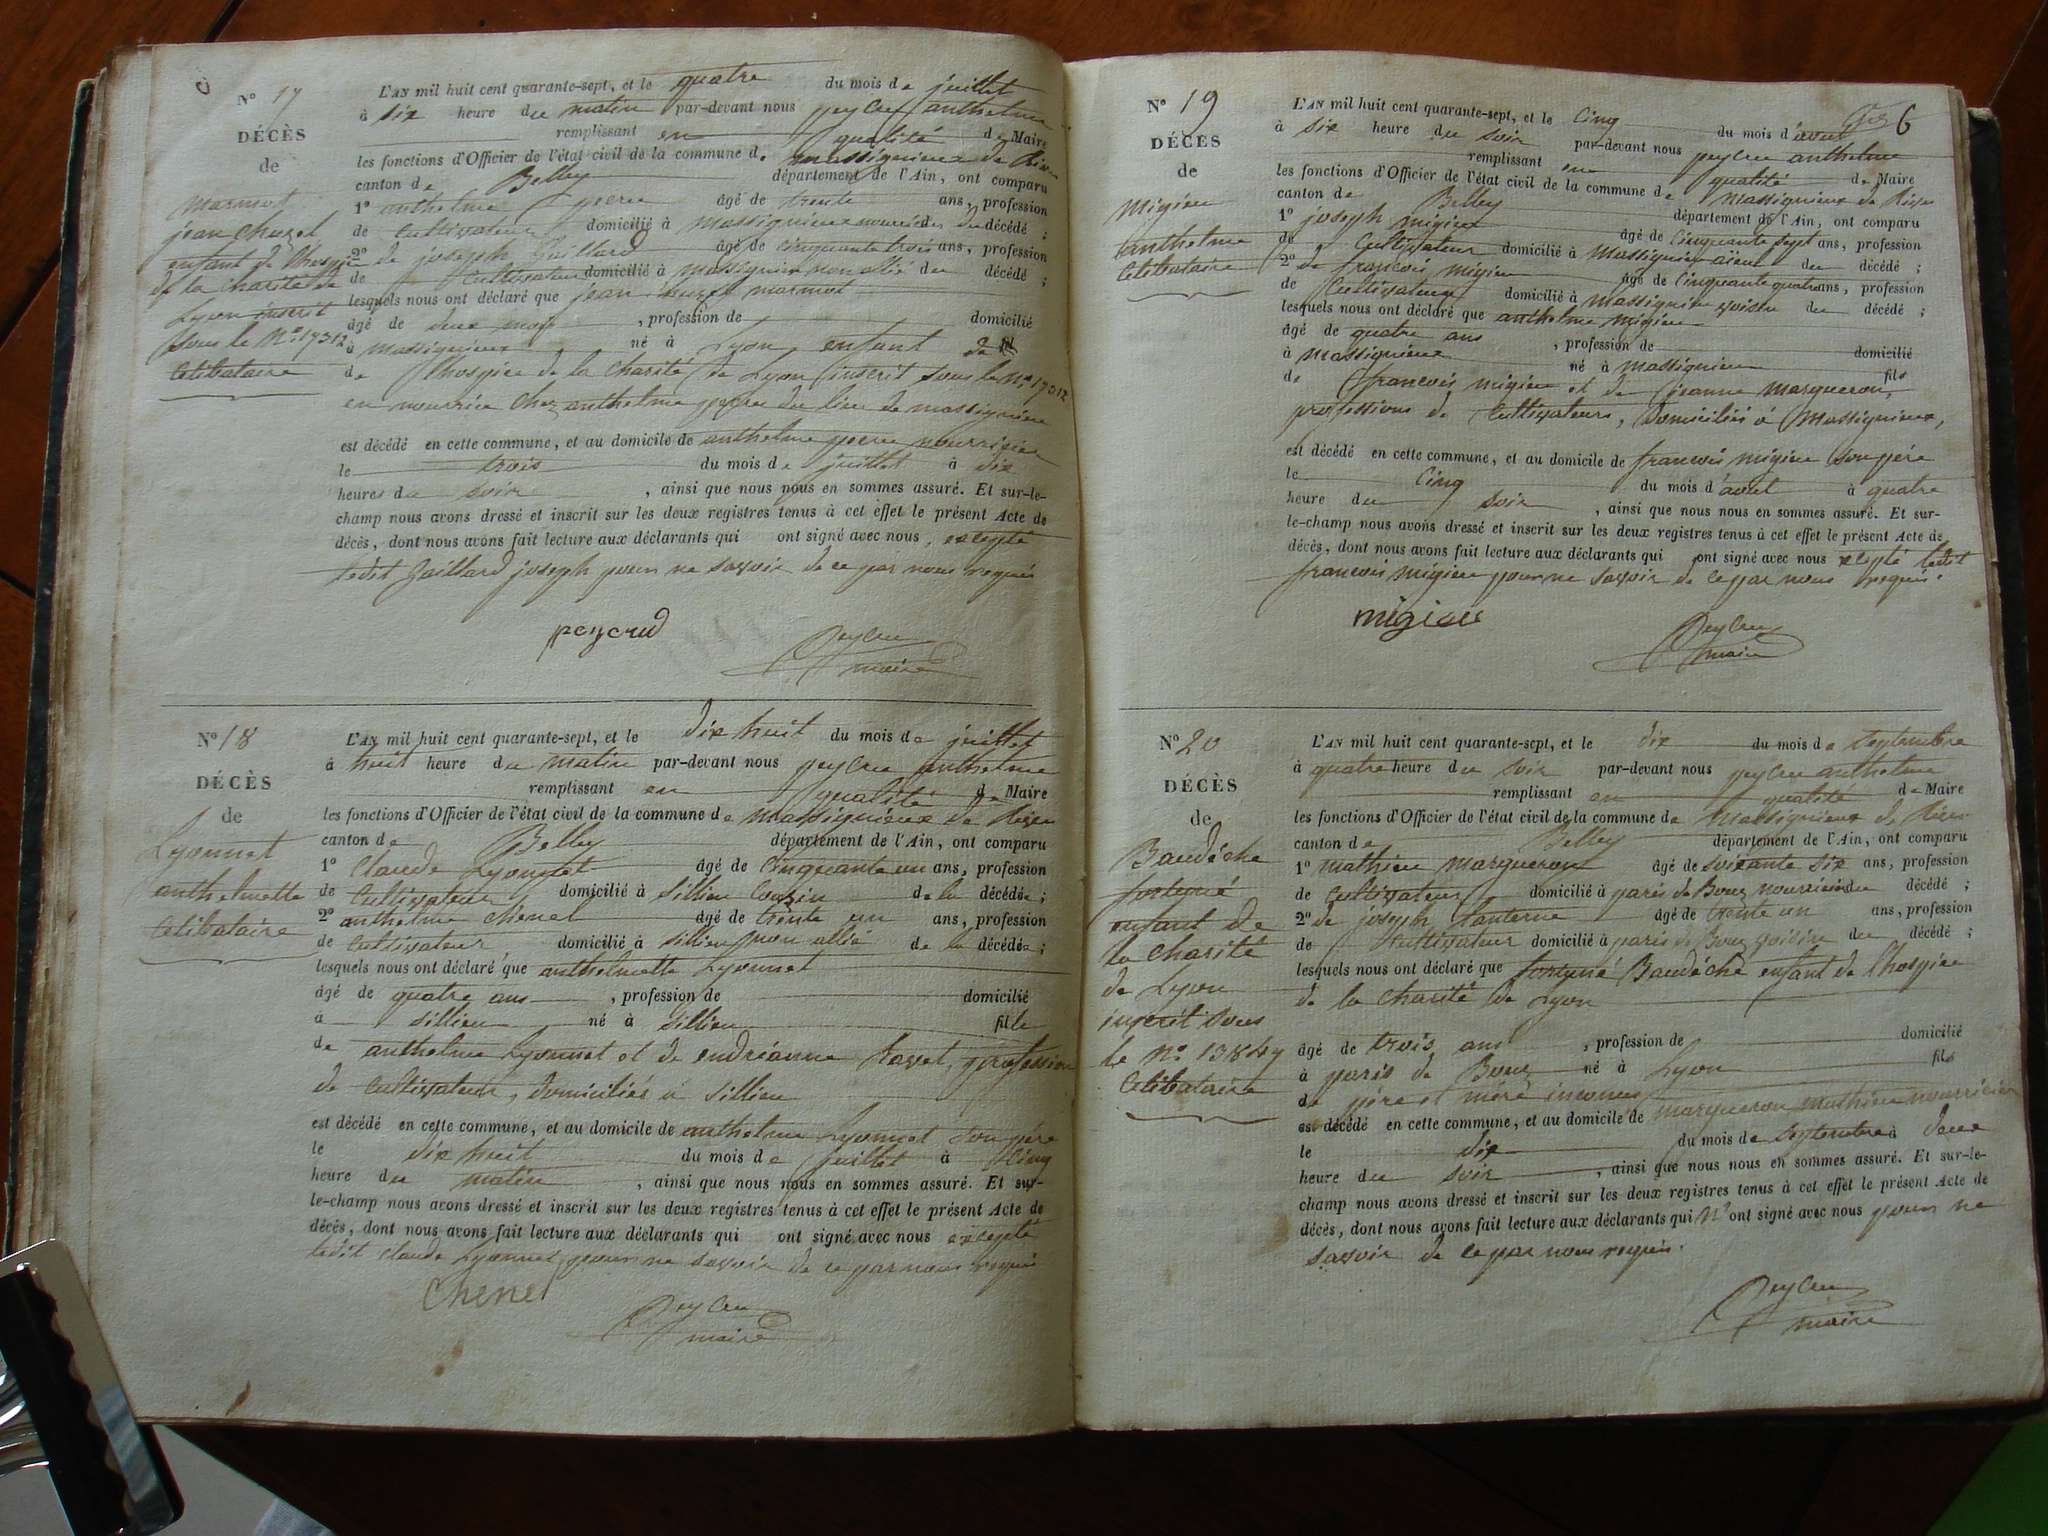 No 17
DÉCÈS
de
marmot
jean chuzel
enfant de l'hospice
de la charité de
Lyon inscrit
sous le No 17312
Celibataire
L'AN mil huit cent quarante-sept, et le quatre du mois de juillet
à six heure du matin par-devant nous peycru anthelme
remplissant en qualité de Maire
les fonctions d'Officier de l'état civil de la commune de massignieux de Rives
canton de Belley département de l'Ain, ont comparu
1º anthelme âgé de trente ans, profession
de cultivateur domicilié à massignieux nourricier du décédé ;
2º de joseph Gaillard âgé de cinquante trois ans, profession
de cultivateur domicilié à massignieu non allié du décédé ;
lesquels nous ont déclaré que jean chuzel marmot
âgé de deux mois , profession de domicilié
à massignieux né à Lyon enfant de
de l'hospice de la charité de Lyon inscrit sous le No 17312
en nourrice chez anthelme du lieu de massignieu
est décédé en cette commune, et au domicile de anthelme nourricier
le trois du mois de juillet à dix
heures du soir , ainsi que nous nous en sommes assuré. Et sur-le-
champ nous avons dressé et inscrit sur les deux registres tenus à cet effet le présent Acte de
décès, dont nous avons fait lecture aux déclarants qui ont signé avec nous, excepté
ledit Gaillard joseph pour ne savoir de ce par nous requis
peycru
maire
No 18
DÉCÈS
de
Lyonnet
anthelmette
Celibataire
L'AN mil huit cent quarante-sept, et le dix huit du mois de juillet
à huit heure du matin par-devant nous peycru anthelme
remplissant en qualité de Maire
les fonctions d'Officier de l'état civil de la commune de massignieux de Rives
canton de Belley département de l'Ain, ont comparu
1º Claude Lyonnet âgé de cinquante un ans, profession
de cultivateur domicilié à sillieu cousin de la décédée ;
2º anthelme chenel âgé de trente un ans, profession
de cultivateur domicilié à sillieu non allié de la décédée ;
lesquels nous ont déclaré que anthelmette Lyonnet
âgé de quatre ans , profession de domicilié
à sillieu né à sillieu fille
de anthelme Lyonnet et de endréanne profession
de cultivateur, domiciliés à sillieu
est décédé en cette commune, et au domicile de anthelme Lyonnet son père
le dix huit du mois de juillet à cinq
heure du matin , ainsi que nous nous en sommes assuré. Et sur-
le-champ nous avons dressé et inscrit sur les deux registres tenus à cet effet le présent Acte de
décès, dont nous avons fait lecture aux déclarants qui ont signé avec nous excepté
ledit claude Lyonnet pour ne savoir de ce par nous requis
Chenel
peycru
maire
6
No 19
DÉCÈS
de
migieu
anthelme
Celibataire
L'AN mil huit cent quarante-sept, et le cinq du mois d'aout
à six heure du soir par-devant nous peycru anthelme
remplissant en qualité de Maire
les fonctions d'Officier de l'état civil de la commune de massignieux de Rives
canton de Belley département de l'Ain, ont comparu
1º joseph migieu âgé de cinquante sept ans, profession
de cultivateur domicilié à massignieu du décédé ;
2º de francois migieu âgé de cinquante quatre ans, profession
de cultivateur domicilié à massignieu voisin du décédé ;
lesquels nous ont déclaré que anthelme migieu
âgé de quatre ans , profession de domicilié
à massignieux né à massignieu fils
de francois migieu et de jeanne marqueron,
professions de cultivateurs, domiciliés à Massignieux,
est décédé en cette commune, et au domicile de francois migieu son père
le cinq du mois d'aout à quatre
heure du soir , ainsi que nous nous en sommes assuré. Et sur-
le-champ nous avons dressé et inscrit sur les deux registres tenus à cet effet le présent Acte de
décès, dont nous avons fait lecture aux déclarants qui ont signé avec nous excpté ledit
francois migieu pour ne savoir de ce par nous requis.
migieu
peycru
maire
No 20
DÉCÈS
de
Baudéché
fortuné
enfant de
la charité
de Lyon
inscrit sous
le No 13847
Celibataire
L'AN mil huit cent quarante-sept, et le dix du mois de septembre
à quatre heure du soir par-devant nous peycru anthelme
remplissant en qualité de Maire
les fonctions d'Officier de l'état civil de la commune de massignieux de Rives
canton de Belley département de l'Ain, ont comparu
1º mathieu marqueron âgé de soixante six ans, profession
de cultivateur domicilié à paris de Bouz nourricier du décédé ;
2º de joseph Lanterne âgé de trente un ans, profession
de cultivateur domicilié à paris de Bouz voisin du décédé ;
lesquels nous ont déclaré que fortuné Baudéché enfant de l'hospice
de la charité de Lyon
âgé de trois ans , profession de domicilié
à paris de Bouz né à Lyon fils
de père et mère inconnus
est décédé en cette commune, et au domicile de marqueron mathieu nourricier
le dix du mois de septembre à deux
heure du soir , ainsi que nous nous en sommes assuré. Et sur-le-
champ nous avons dressé et inscrit sur les deux registres tenus à cet effet le présent Acte de
décès, dont nous avons fait lecture aux déclarants qui n'ont signé avec nous pour ne
savoir de ce par nous requis.
peycru
maire